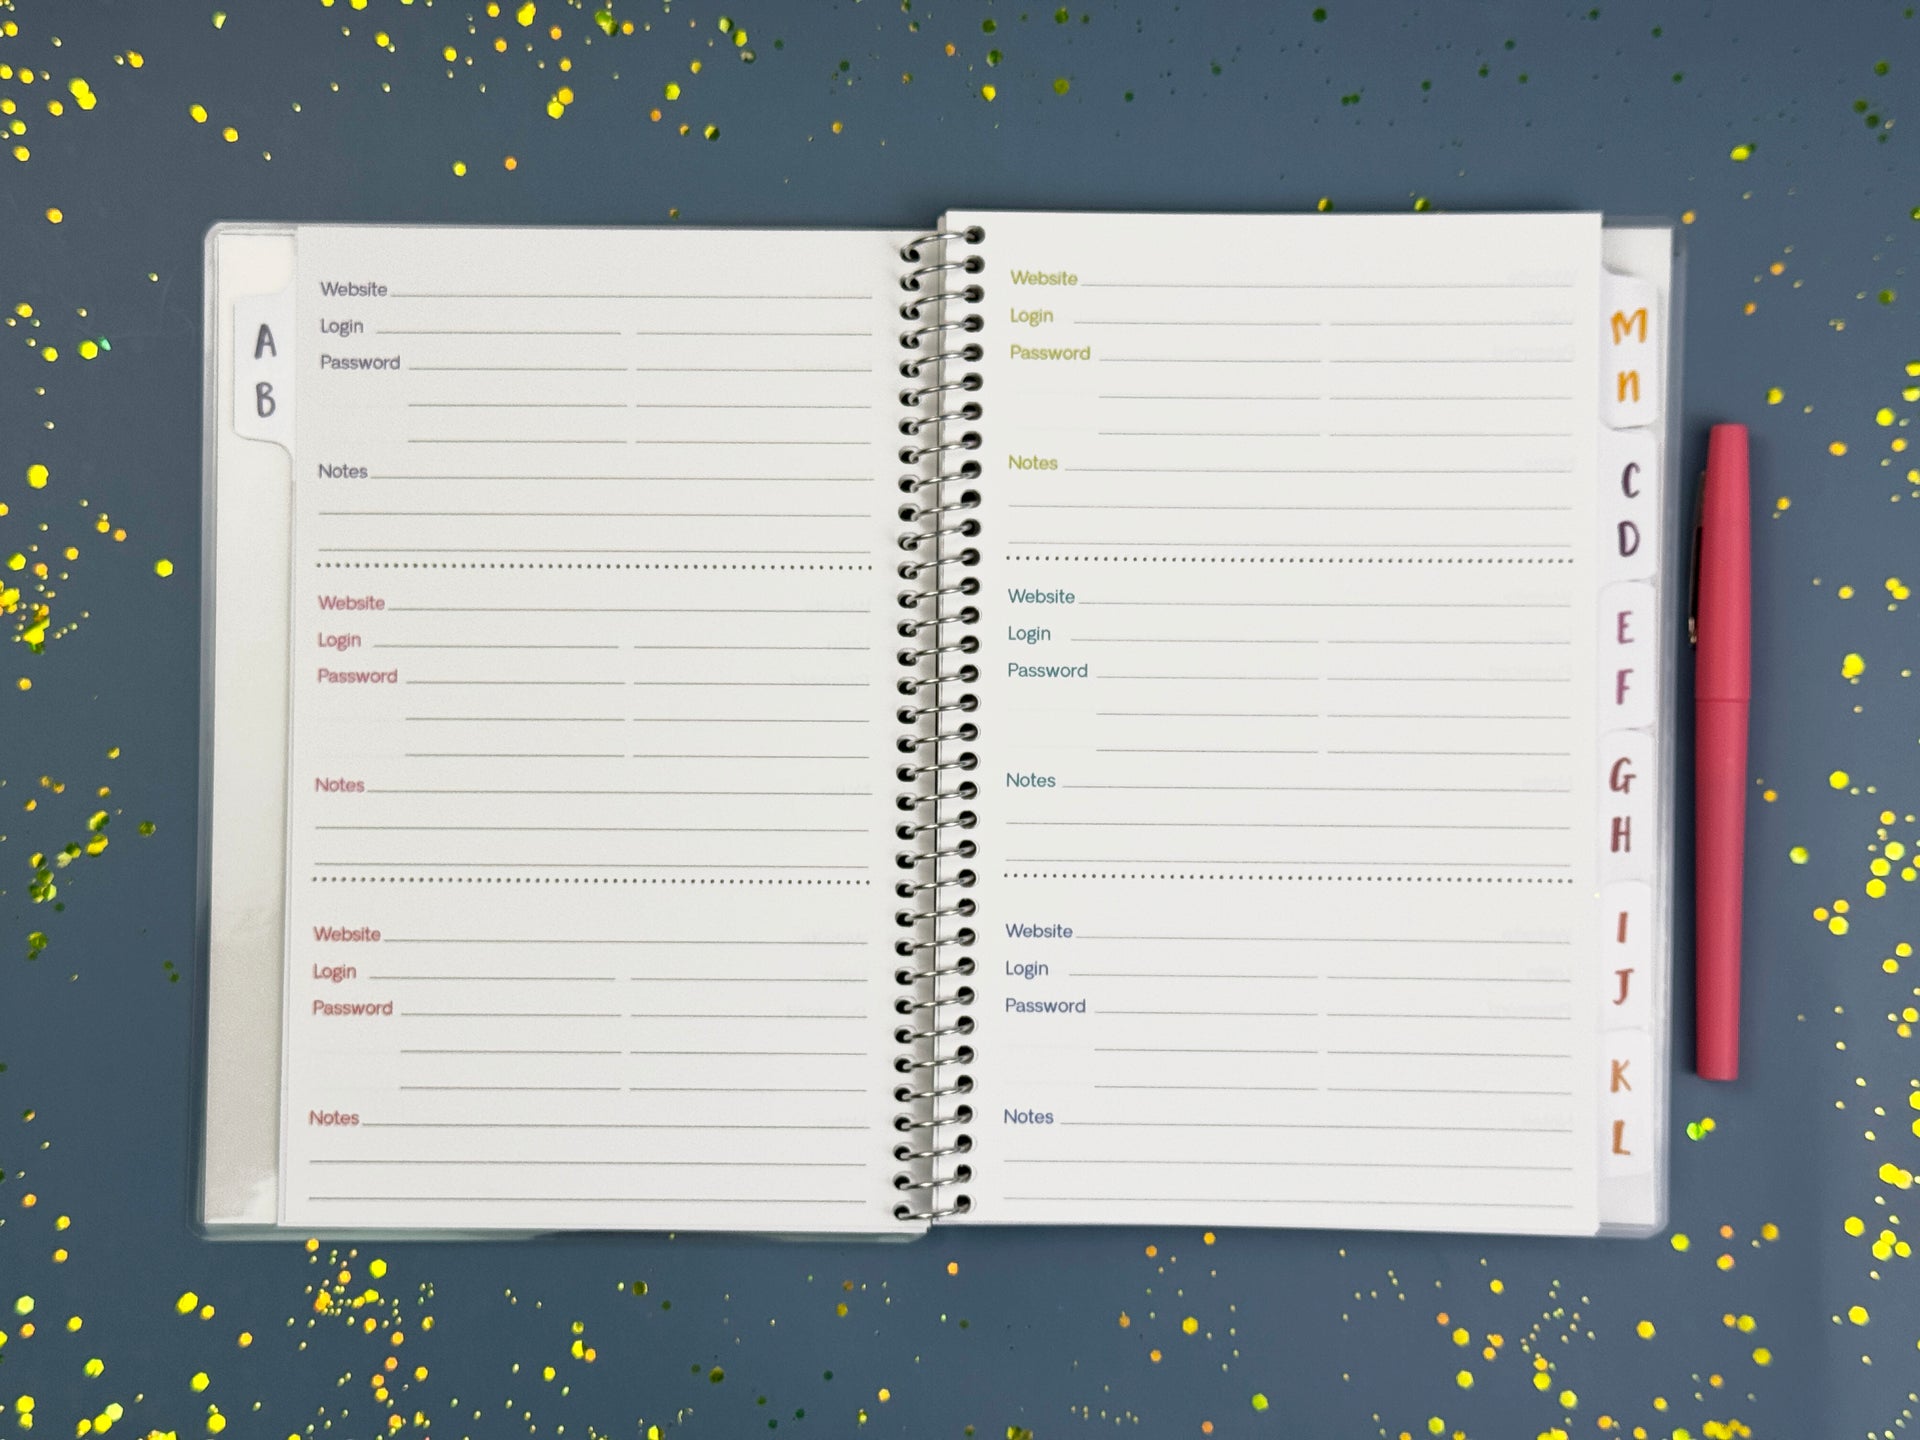 A
B
Website
Login
Password
Notes
Website
Login
Password
Notes
Website
Login
Password
Notes
Website
Login
Password
Notes
Website
Login
Password
Notes
Website
Login
Password
Notes
M
n
C
D
E
F
G
H
I
J
K
L